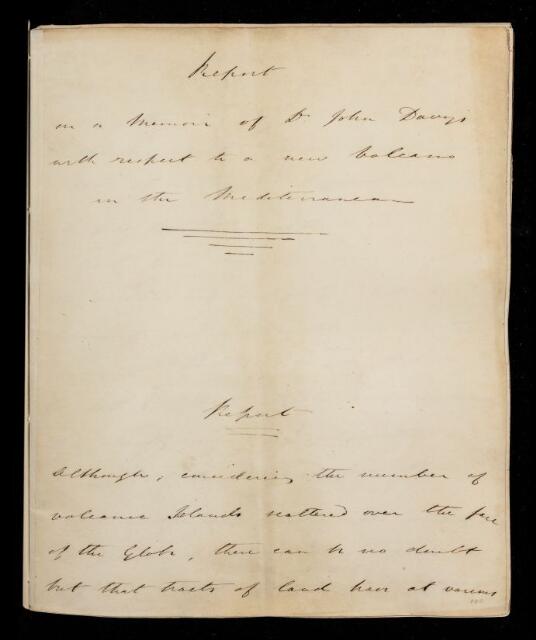 Report
on a Memoir of Dr John Davy's
with respect to a new Volcano
in the Mediterranean
Report
Although, considering the number of
volcanic Islands scattered over the face
of the Globe, there can be no doubt
but that tracts of land have at various